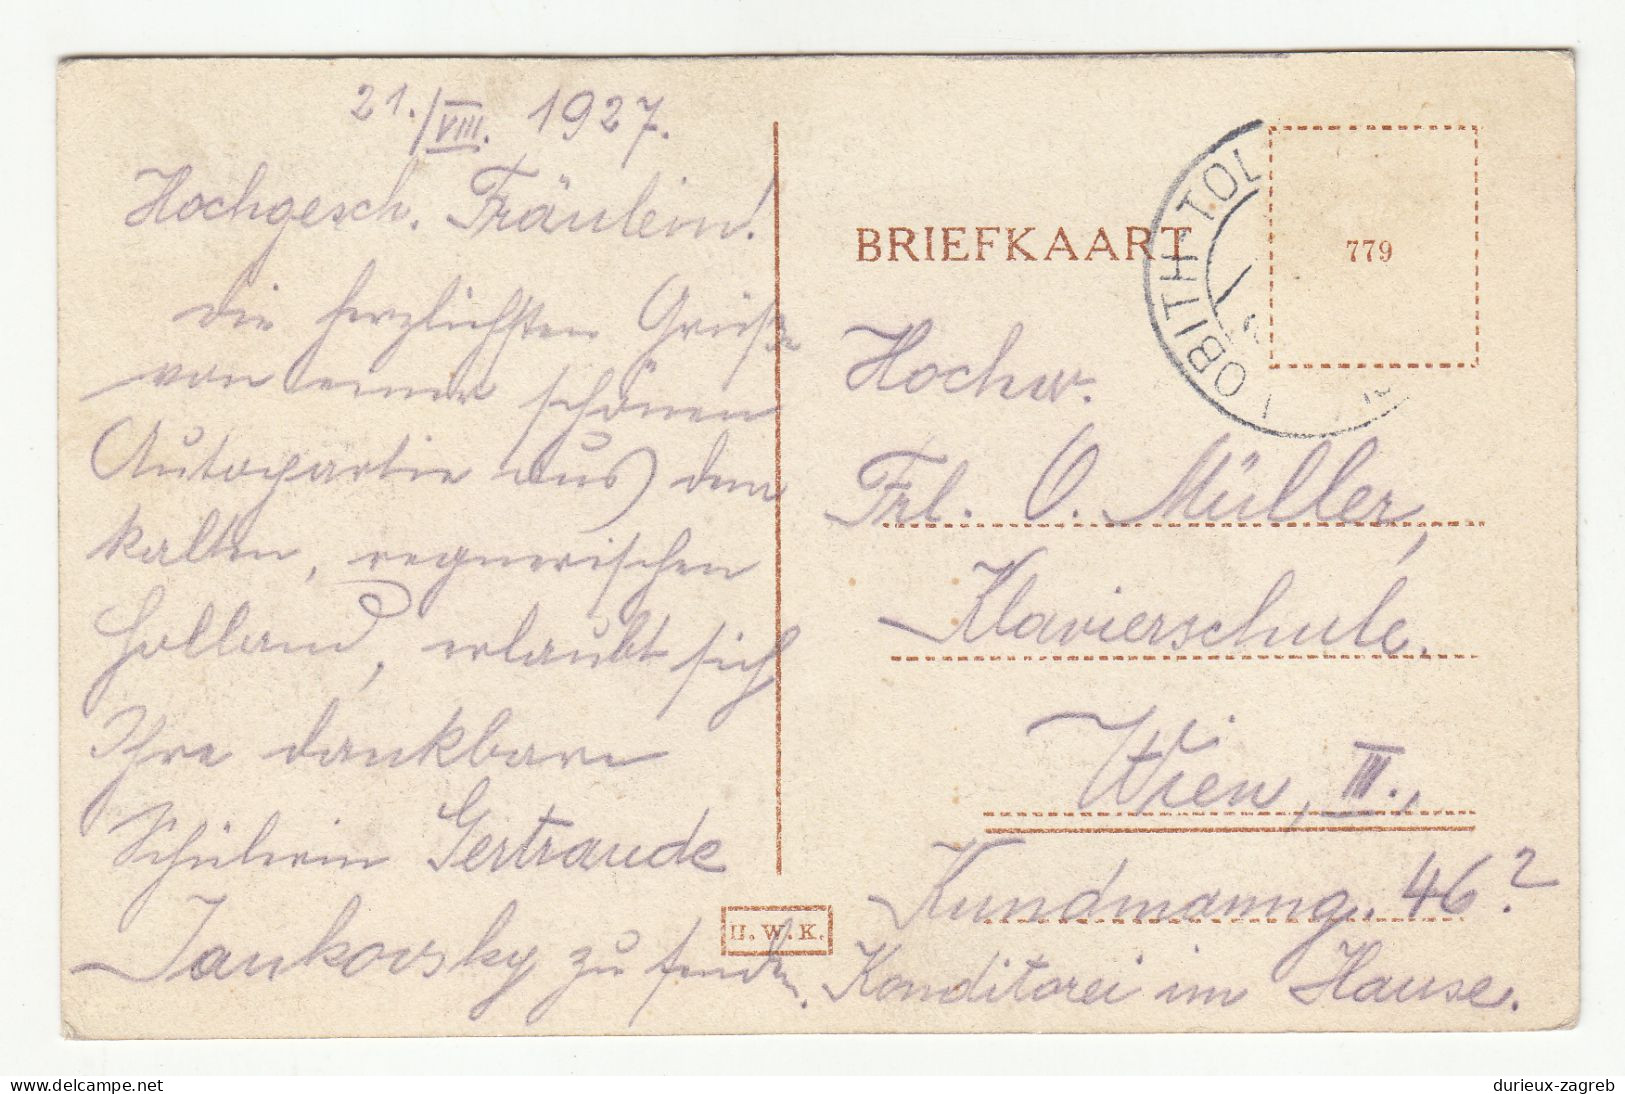 21./VIII. 1927.
Hochgesch. Fräulein!
Die herzlichsten Grüße
von einer schönen
Autopartie aus dem
kalten, regnerischen
Holland, erlaubt sich
Ihre dankbare
Schülerin Gertraude
Jankovsky zu senden.
BRIEFKAART
779
LOBITH-TOL
Hochw.
Frl. O. Müller,
Klavierschule.
Wien, III.,
Kundmanng. 46?
Konditorei im Hause.
H.W.K.
durieux-zagreb